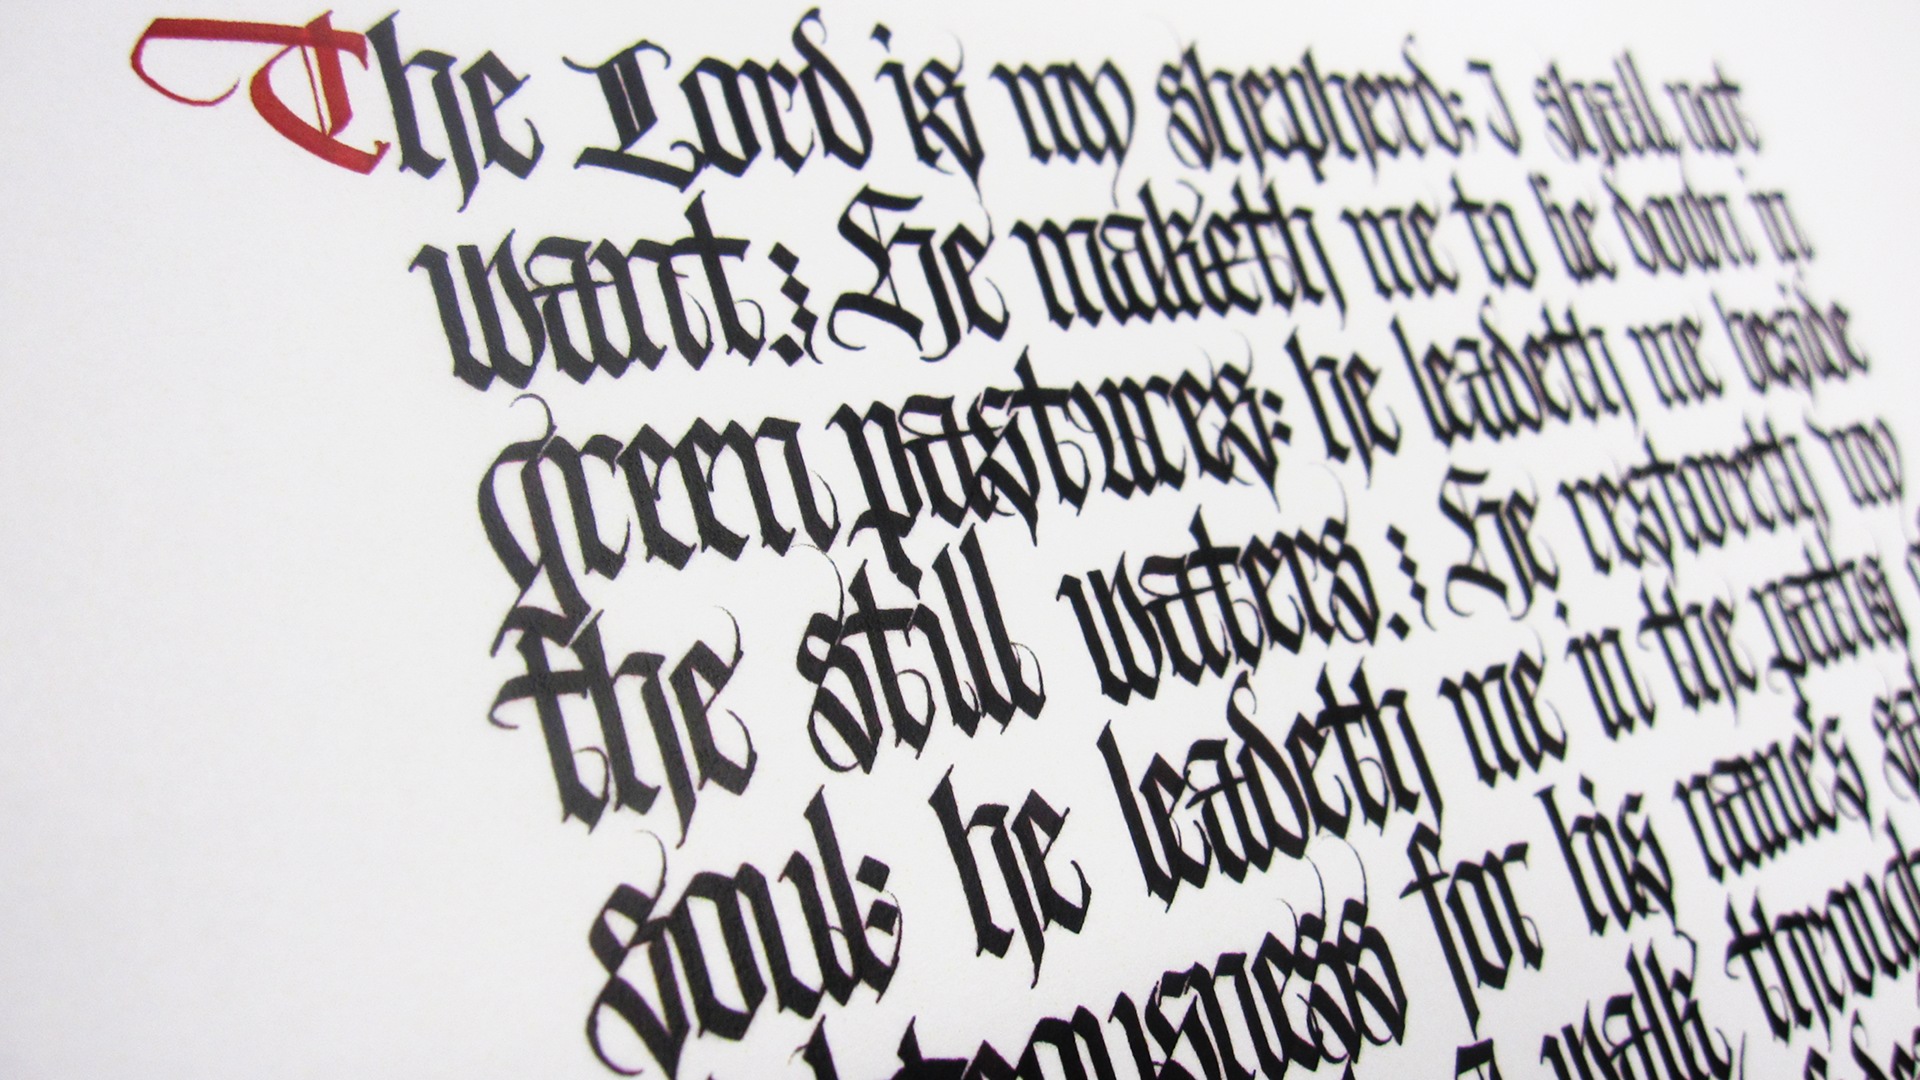 The Lord is my shepherd; I shall not
want: He maketh me to lie down in
green pastures: he leadeth me beside
the still waters: He restoreth my
soul: he leadeth me in the paths
for his name's
I walk through